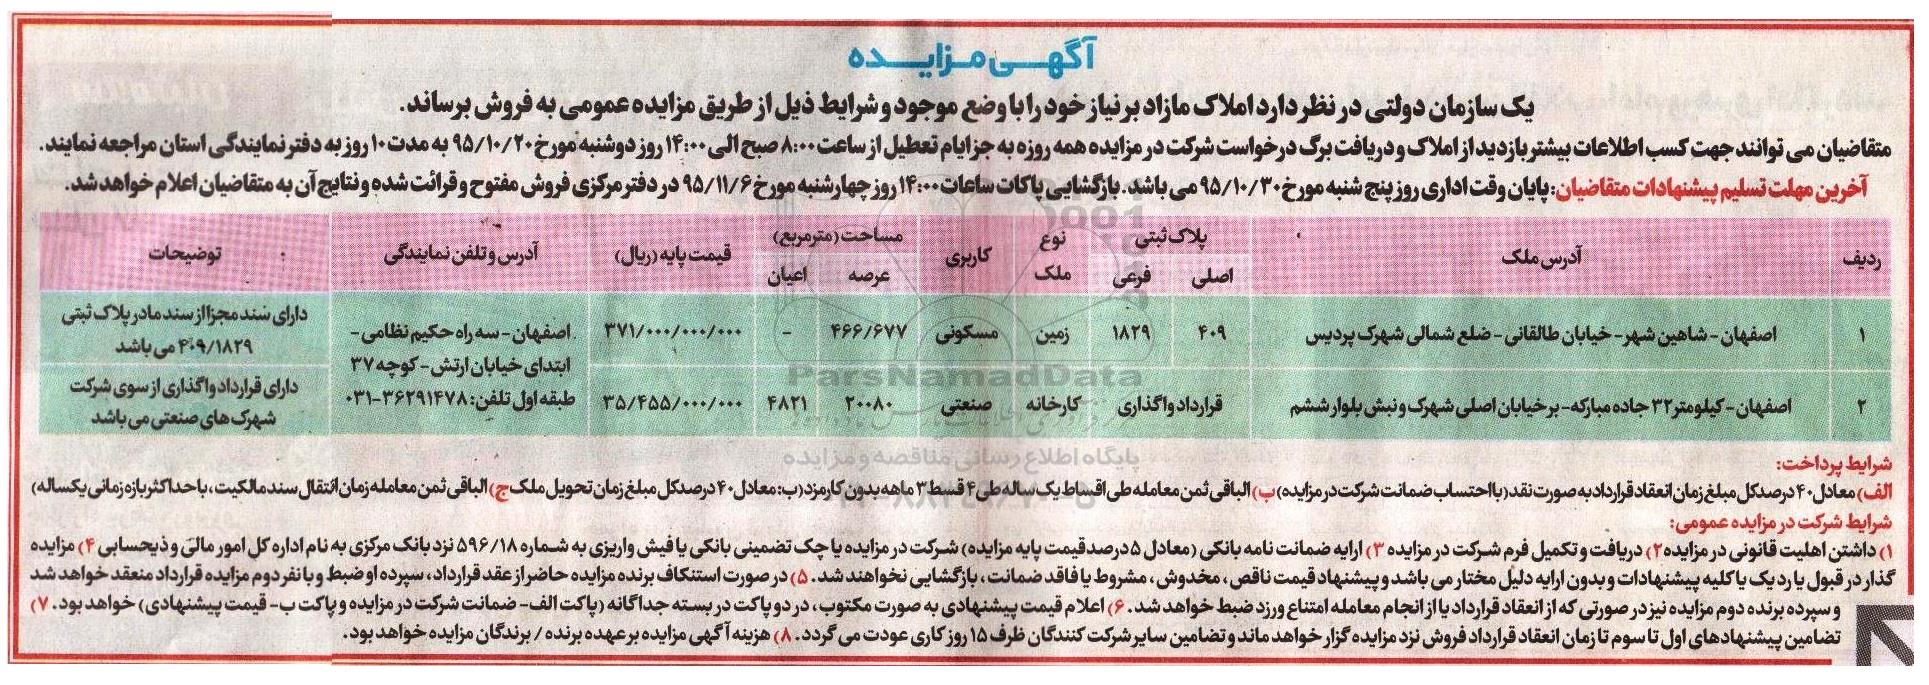 آگهی مزایده
یک سازمان دولتی در نظر دارد املاک مازاد بر نیاز خود را با وضع موجود و شرایط ذیل از طریق مزایده عمومی به فروش برساند.
متقاضیان می توانند جهت کسب اطلاعات بیشتر بازدید از املاک و دریافت برگ درخواست شرکت در مزایده همه روزه به جز ایام تعطیل از ساعت ۸:۰۰ صبح الی ۱۴:۰۰ روز دوشنبه مورخ ۹۵/۱۰/۲۰ به مدت ۱۰ روز به دفتر نمایندگی استان مراجعه نمایند.
آخرین مهلت تسلیم پیشنهادات متقاضیان: پایان وقت اداری روز پنج شنبه مورخ ۹۵/۱۰/۳۰ می باشد. بازگشایی پاکات ساعات ۱۴:۰۰ روز چهارشنبه مورخ ۹۵/۱۱/۶ در دفتر مرکزی فروش مفتوح و قرائت شده و نتایج آن به متقاضیان اعلام خواهد شد.
ردیف آدرس ملک پلاک ثبتی اصلی فرعی نوع ملک کاربری مساحت (مترمربع) عرصه اعیان قیمت پایه (ریال) آدرس و تلفن نمایندگی توضیحات
۱ اصفهان - شاهین شهر - خیابان طالقانی - ضلع شمالی شهرک پردیس ۴۰۹ ۱۸۲۹ زمین مسکونی ۴۶۶/۶۷۷ - ۳۷۱/۰۰۰/۰۰۰/۰۰۰
دارای سند مجزا از سند مادر پلاک ثبتی
۴۰۹/۱۸۲۹ می باشد
۲ اصفهان - کیلومتر ۳۲ جاده مبارکه - بر خیابان اصلی شهرک و نبش بلوار ششم قرارداد واگذاری کارخانه صنعتی ۲۰۰۸۰ ۴۸۲۱ ۳۵/۴۵۵/۰۰۰/۰۰۰
اصفهان - سه راه حکیم نظامی -
ابتدای خیابان ارتش - کوچه ۳۷
طبقه اول تلفن: ۳۶۲۹۱۴۷۸-۰۳۱
دارای قرارداد واگذاری از سوی شرکت
شهرک های صنعتی می باشد
شرایط پرداخت:
الف) معادل ۴۰ درصد کل مبلغ زمان انعقاد قرارداد به صورت نقد (با احتساب ضمانت شرکت در مزایده) ب) الباقی ثمن معامله طی اقساط یک ساله طی ۴ قسط ۳ ماهه بدون کارمزد (ب: معادل ۴۰ درصد کل مبلغ زمان تحویل ملک ج) الباقی ثمن معامله زمان انتقال سند مالکیت، با حداکثر بازه زمانی یکساله)
شرایط شرکت در مزایده عمومی:
۱) داشتن اهلیت قانونی در مزایده ۲) دریافت و تکمیل فرم شرکت در مزایده ۳) ارایه ضمانت نامه بانکی (معادل ۵ درصد قیمت پایه مزایده) شرکت در مزایده یا چک تضمینی بانکی یا فیش واریزی به شماره ۵۹۶/۱۸ نزد بانک مرکزی به نام اداره کل امور مالی و ذیحسابی ۴) مزایده
گذار در قبول یا رد یک یا کلیه پیشنهادات و بدون ارایه دلیل مختار می باشد و پیشنهاد قیمت ناقص، مخدوش، مشروط یا فاقد ضمانت، بازگشایی نخواهند شد. ۵) در صورت استنکاف برنده مزایده حاضر از عقد قرارداد، سپرده او ضبط و با نفر دوم مزایده قرارداد منعقد خواهد شد
و سپرده برنده دوم مزایده نیز در صورتی که از انعقاد قرارداد یا از انجام معامله امتناع ورزد ضبط خواهد شد. ۶) اعلام قیمت پیشنهادی به صورت مکتوب، در دو پاکت در بسته جداگانه (پاکت الف - ضمانت شرکت در مزایده و پاکت ب - قیمت پیشنهادی) خواهد بود. ۷)
تضامین پیشنهادهای اول تا سوم تا زمان انعقاد قرارداد فروش نزد مزایده گزار خواهد ماند و تضامین سایر شرکت کنندگان ظرف ۱۵ روز کاری عودت می گردد. ۸) هزینه آگهی مزایده بر عهده برنده / برندگان مزایده خواهد بود.
ParsNamadData
پایگاه اطلاع رسانی مناقصه و مزایده